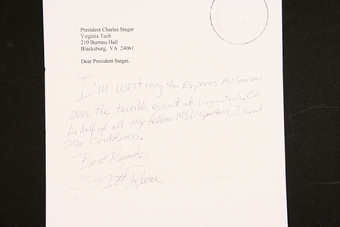 President Charles Steger
Virginia Tech
210 Burruss Hall
Blacksburg, VA 24061
Dear President Steger,
I'm writing to express my sorrow
over the terrible event at Virginia Tech. On
behalf of all my fellow MSU Spartans, I send
my condolences.
Best Regards,
Reese